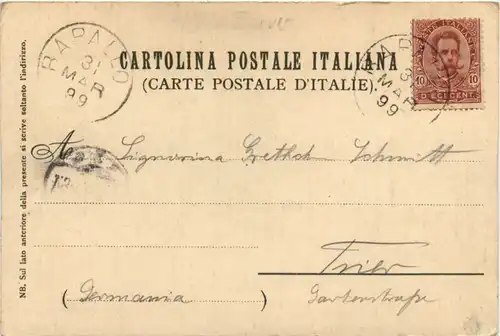 RAPALLO
31
MAR
99
CARTOLINA POSTALE ITALIANA
(CARTE POSTALE D'ITALIE).
POSTE ITALIANE
10 10
31
MAR
99
NB. Sul lato anteriore della presente si scrive soltanto l'indirizzo.
A Signorina Grethch Schmitt
Trier
(Germania) Gartenstraße